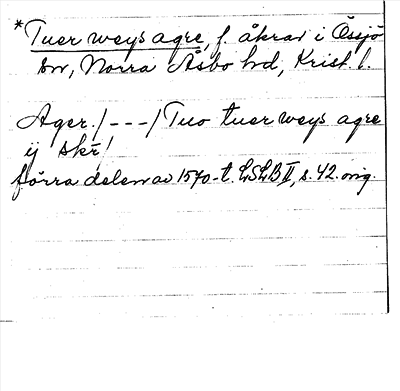 *Tuer weys agre, f. åkrar i Össjö
sn, Norra Åsbo hd, Krist. l.
Ager. / - - - / Tuo tuer weys agre
ij skr!
förra delen av 1570-t. LSLB II, s. 42. orig.